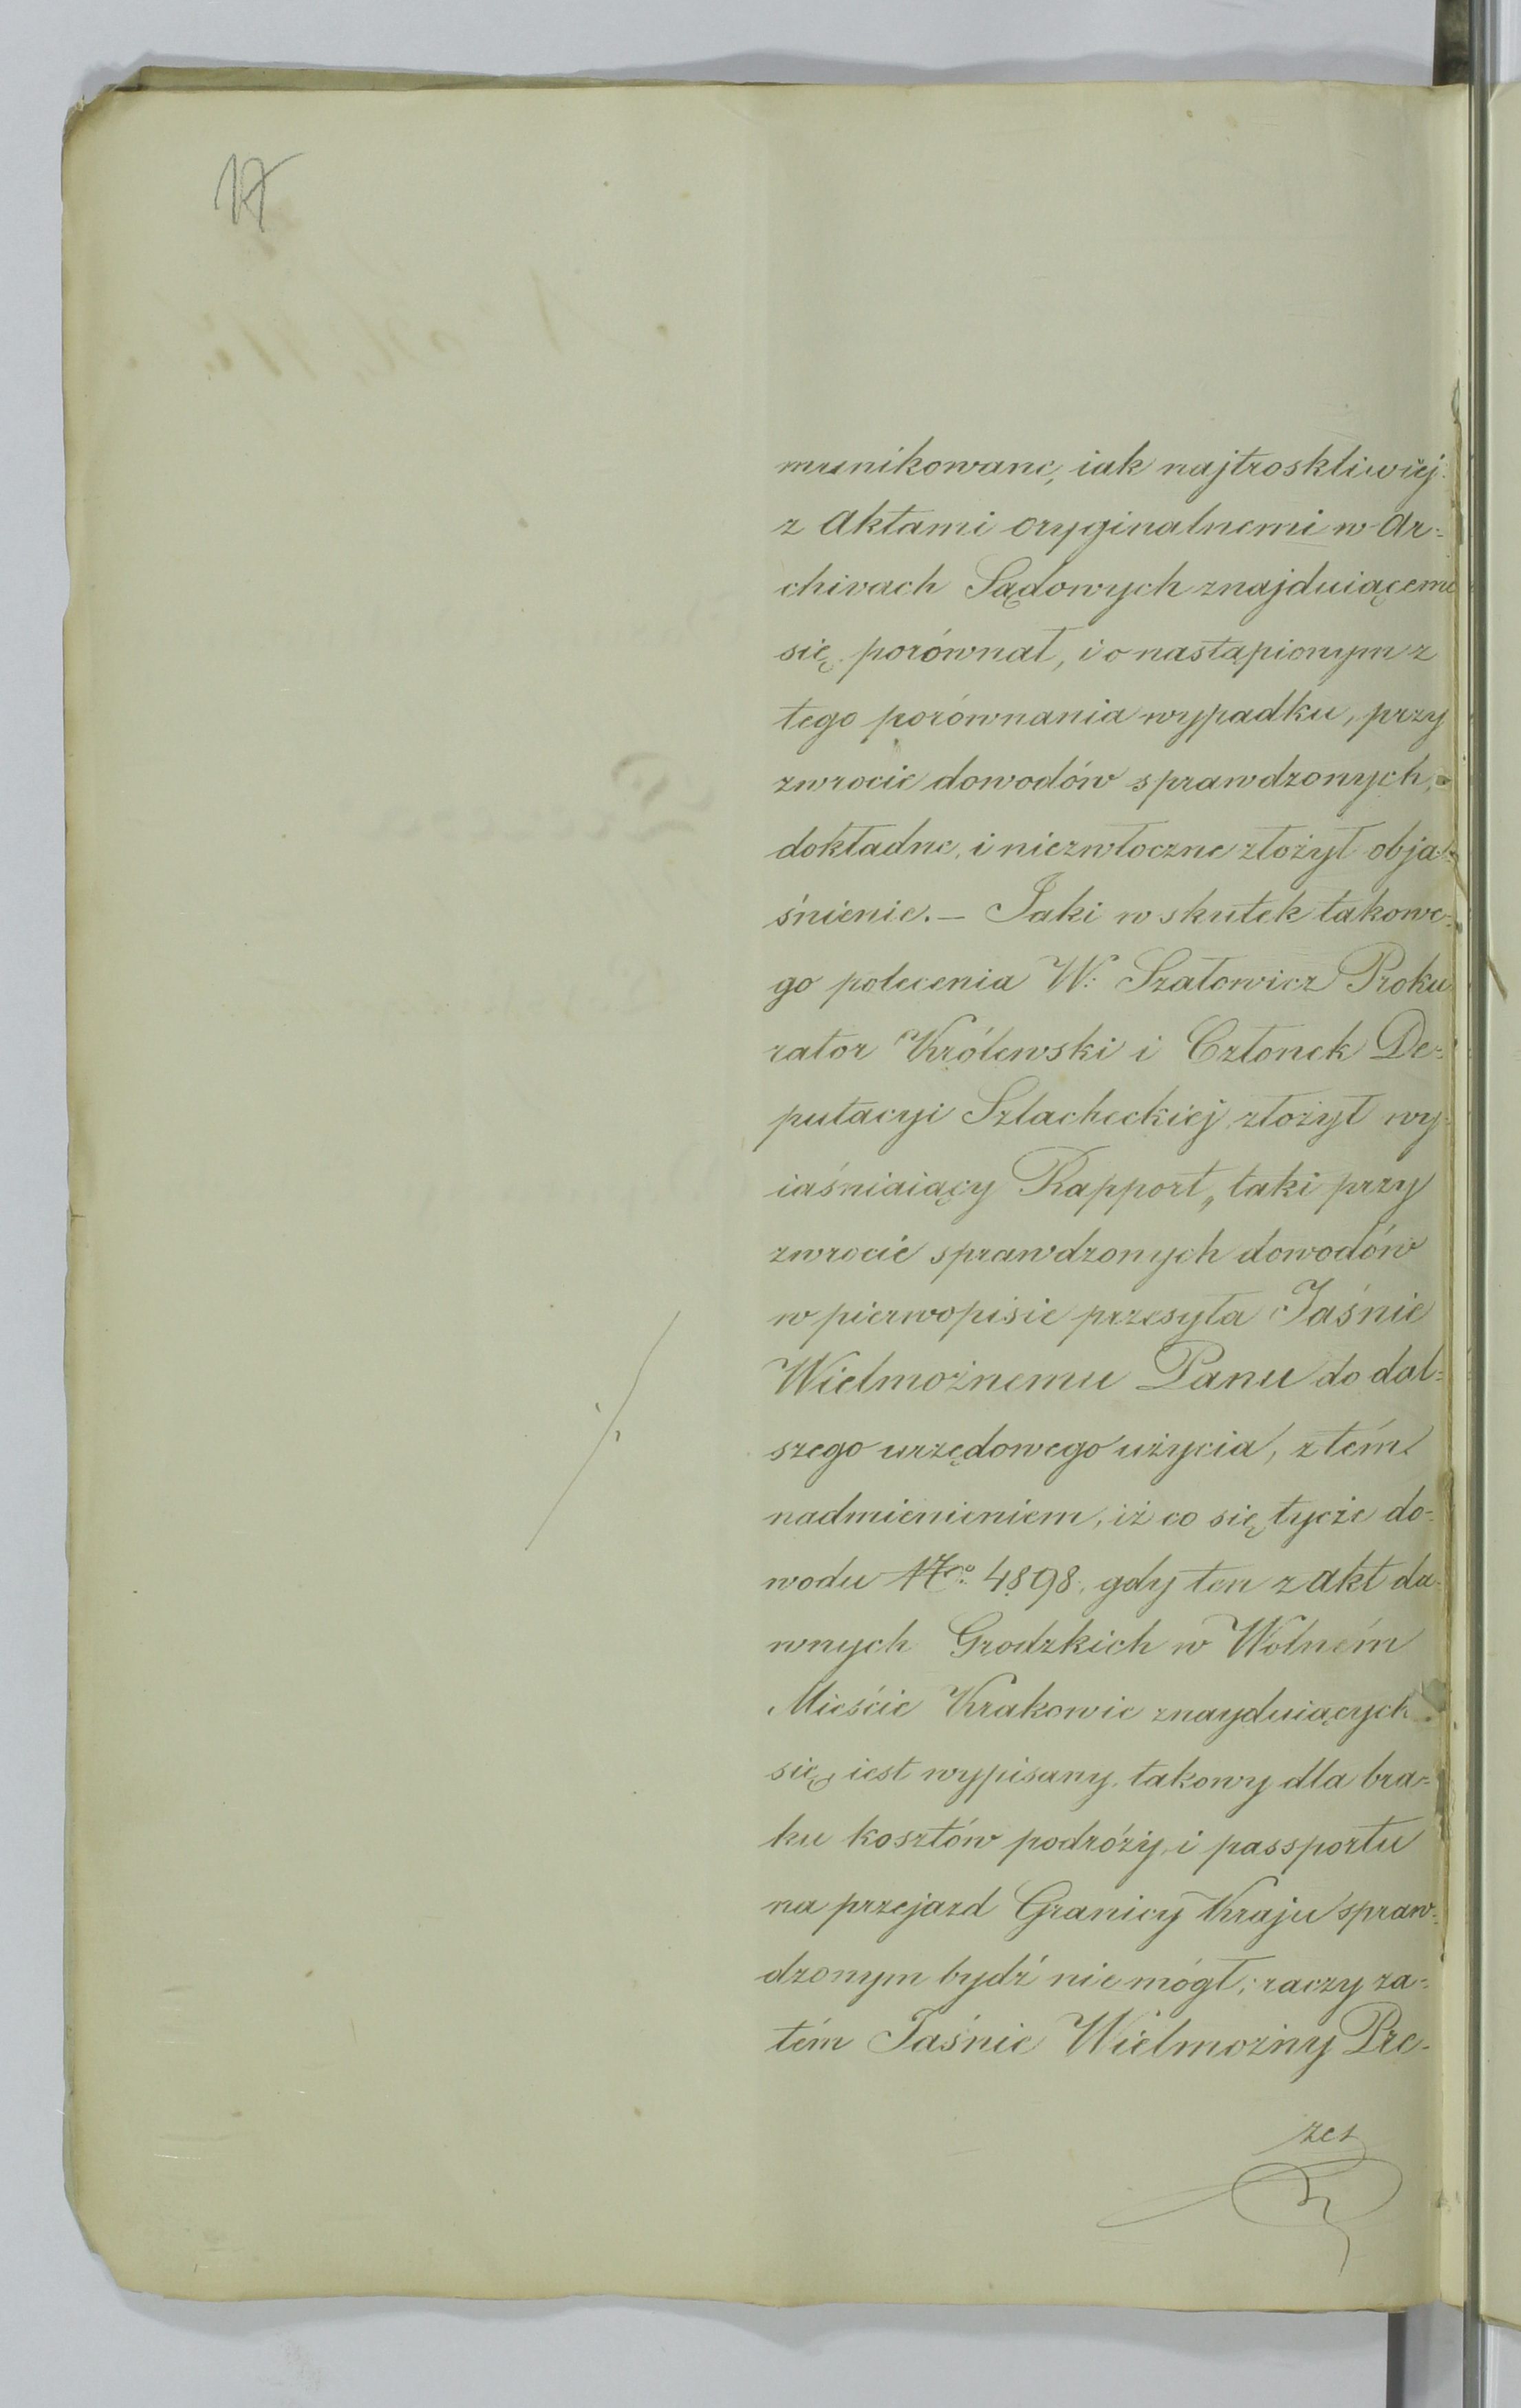 17
munikowane, iak najtroskliwiéj
z Aktami oryginalnemi w Ar=
chivach Sądowych znajduiącemi
się porównał, i o nastąpionym z
tego porównania wypadku, przy
zwrocie dowodów sprawdzonych,
dokładne, i niezwłoczne złożył obja=
śnienie. — Jaki w skutek takowe=
go polecenia W: Szatowicz Proku
rator Królewski i Członek De=
putacyi Szlacheckiej, złożył wy=
iaśniaiący Rapport, taki przy
zwrocie sprawdzonych dowodów
w pierwopisie przesyła Jaśnie
Wielmożnemu Panu do dal=
szego urzędowego użycia, z tém
nadmienieniem, iż co się tycze do=
wodu Nro: 4898, gdy ten z akt da=
wnych Grodzkich w Wolném
Mieście Krakowie znayduiących
się, iest wypisany, takowy dla bra=
ku kosztów podróży, i passportu
na przejazd Granicy Kraju spraw=
dzonym bydź nie mógł; raczy za=
tém Jaśnie Wielmożny Pre-
zes